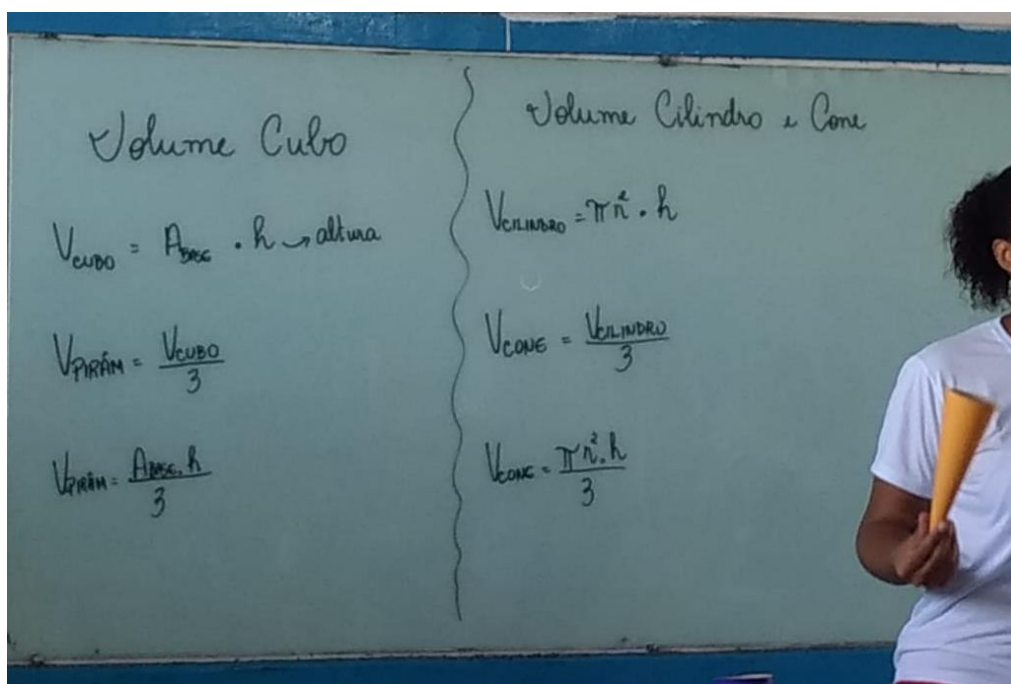 Volume Cubo
V_CUBO = A_BASE . h → altura
V_PIRÂM = V_CUBO / 3
V_PIRÂM = A_BASE . h / 3
Volume Cilindro e Cone
V_CILINDRO = πr² . h
V_CONE = V_CILINDRO / 3
V_CONE = πr² . h / 3